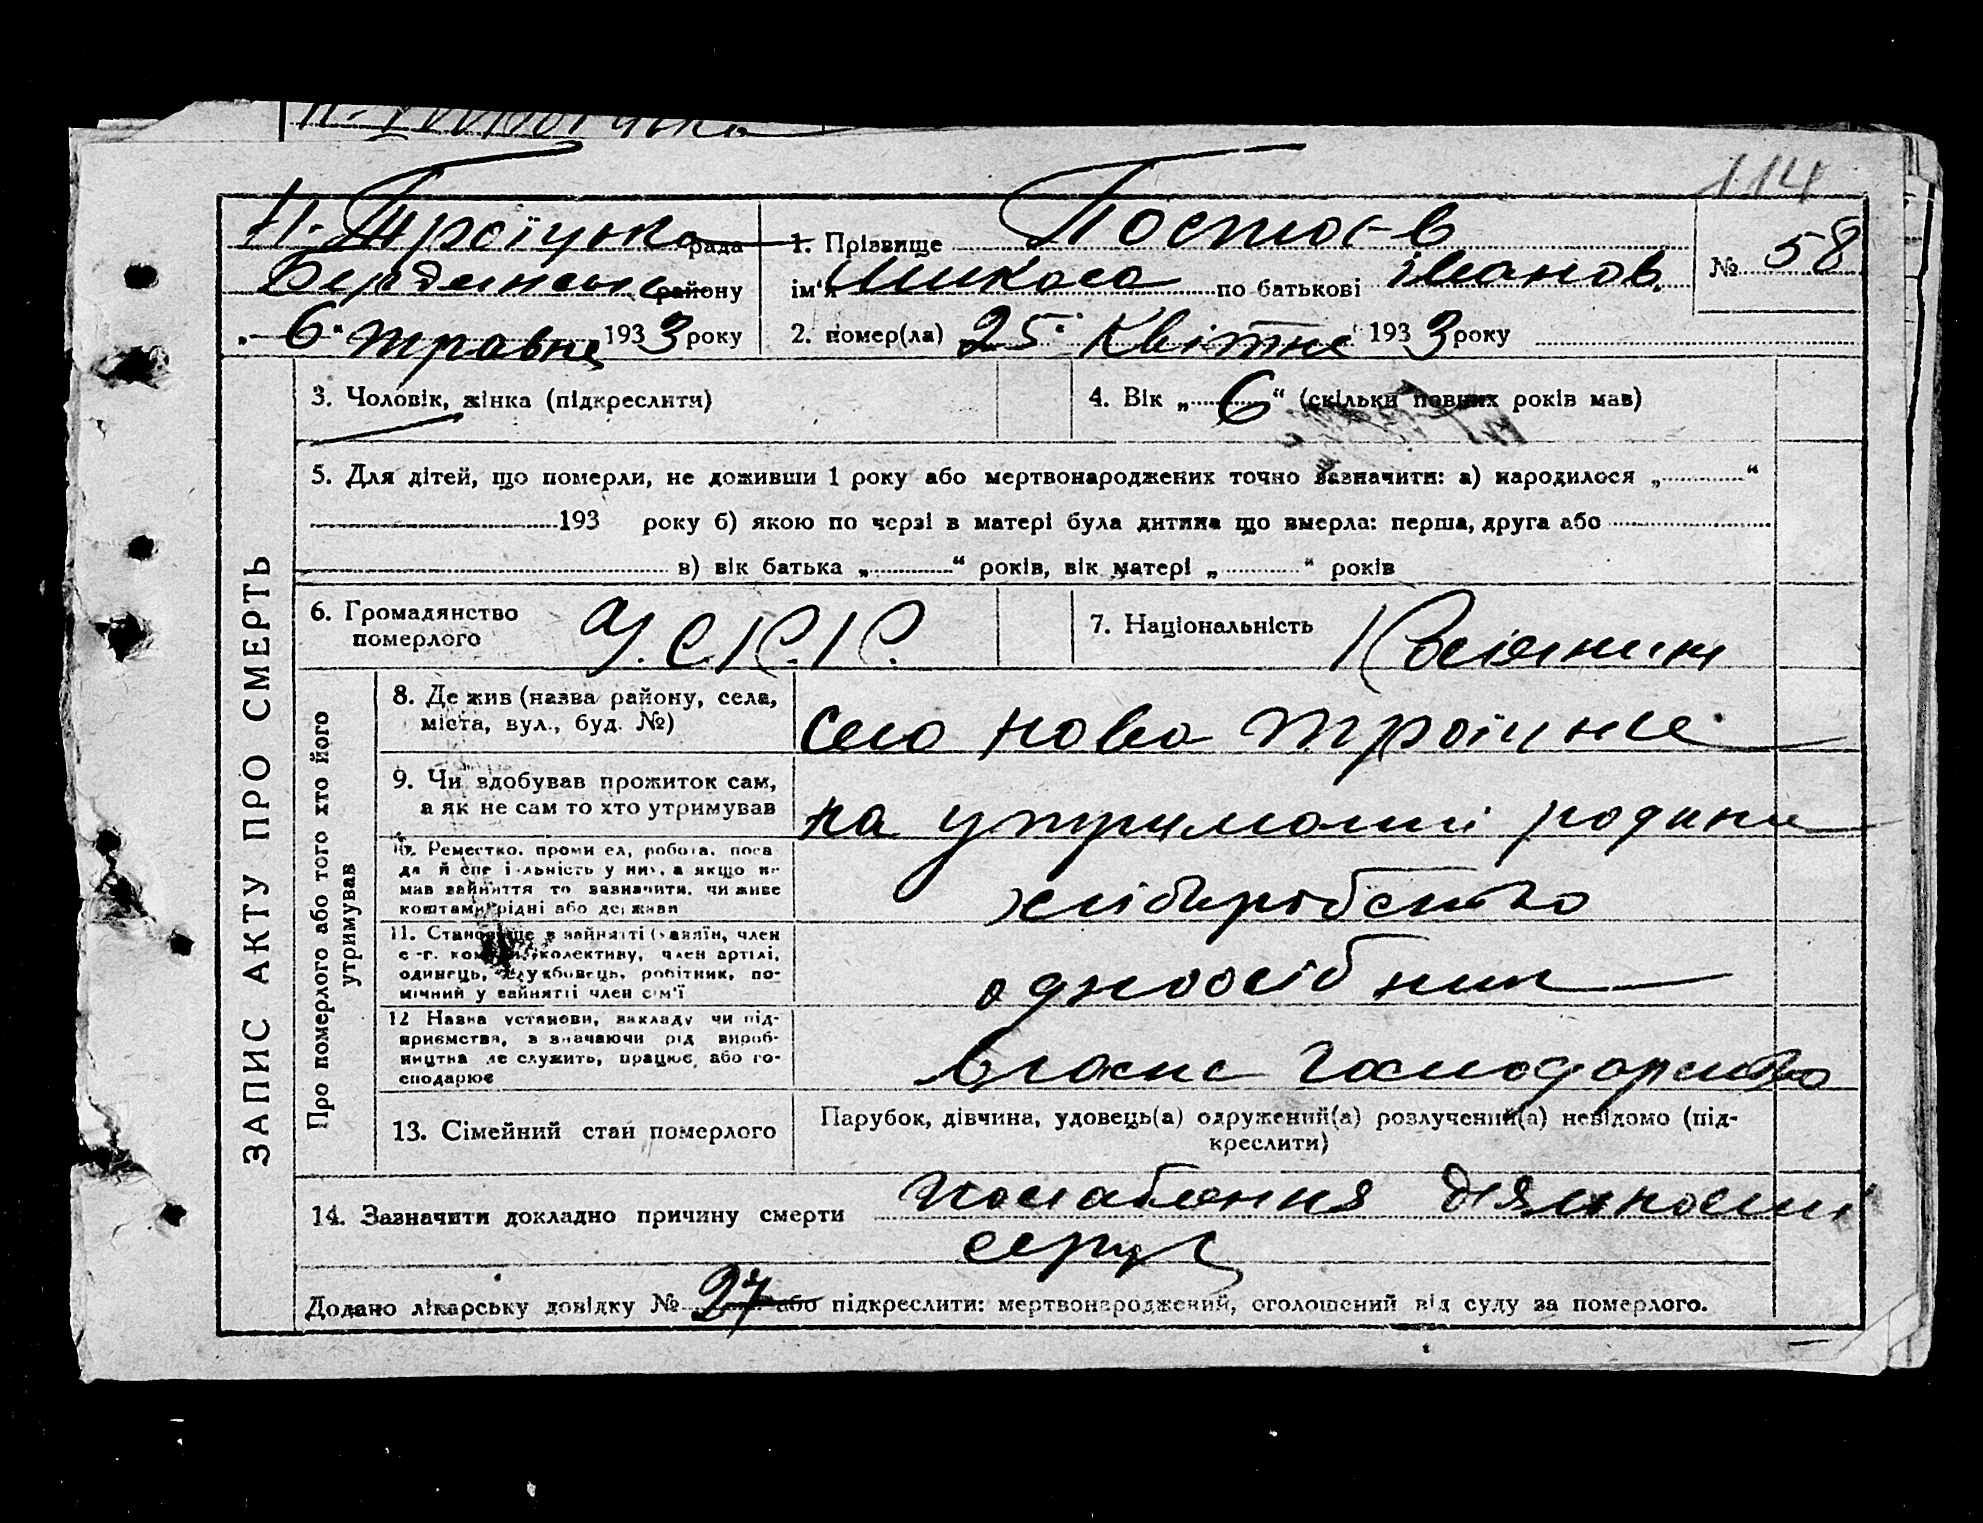 114
Н. Троїцька рада
Бердянсько району
„ 6 “ травня 193 3 року
1. Прізвище
ім'я Микола по батькові Іванов.
№ 58
2. помер(ла) 25 квітня 193 3 року
ЗАПИС АКТУ ПРО СМЕРТЬ
3. Чоловік, жінка (підкреслити)
4. Вік „ 6 “ (скільки повних років мав)
5. Для дітей, що померли, не доживши 1 року або мертвонароджених точно зазначити: а) народилося „ “
193 року б) якою по черзі в матері була дитина що вмерла: перша, друга або
в) вік батька „ “ років, вік матері „ “ років
6. Громадянство
померлого
У.С.Р.Р.
7. Національність
Про померлого або того хто його
утримував
8. Де жив (назва району, села,
міста, вул., буд. №)
село Ново Троїцке
9. Чи здобував прожиток сам,
а як не сам то хто утримував
на утриманні родини
10. Реместко, промисел, робота, поса
да й спеціяльність у них, а якщо не
мав зайняття то зазначити, чи живе
коштами рідні або держави
хліборобство
11. Становище в зайнятті (хазяїн, член
с.-г. комуни, колективу, член артілі,
одинець, службовець, робітник, по-
мічний у зайнятті член сім'ї
одноосібник
12 Назва установи, закладу чи під-
приємства, зазначаючи рід вироб-
ництва де служить, працює, або го-
сподарює
власне господарство
13. Сімейний стан померлого
Парубок, дівчина, удовець(а) одружений(а) розлучений(а) невідомо (під-
креслити)
14. Зазначити докладно причину смерти
послаблення діяльності
серця
Додано лікарську довідку № 27 або підкреслити: мертвонароджений, оголошений від суду за померлого.